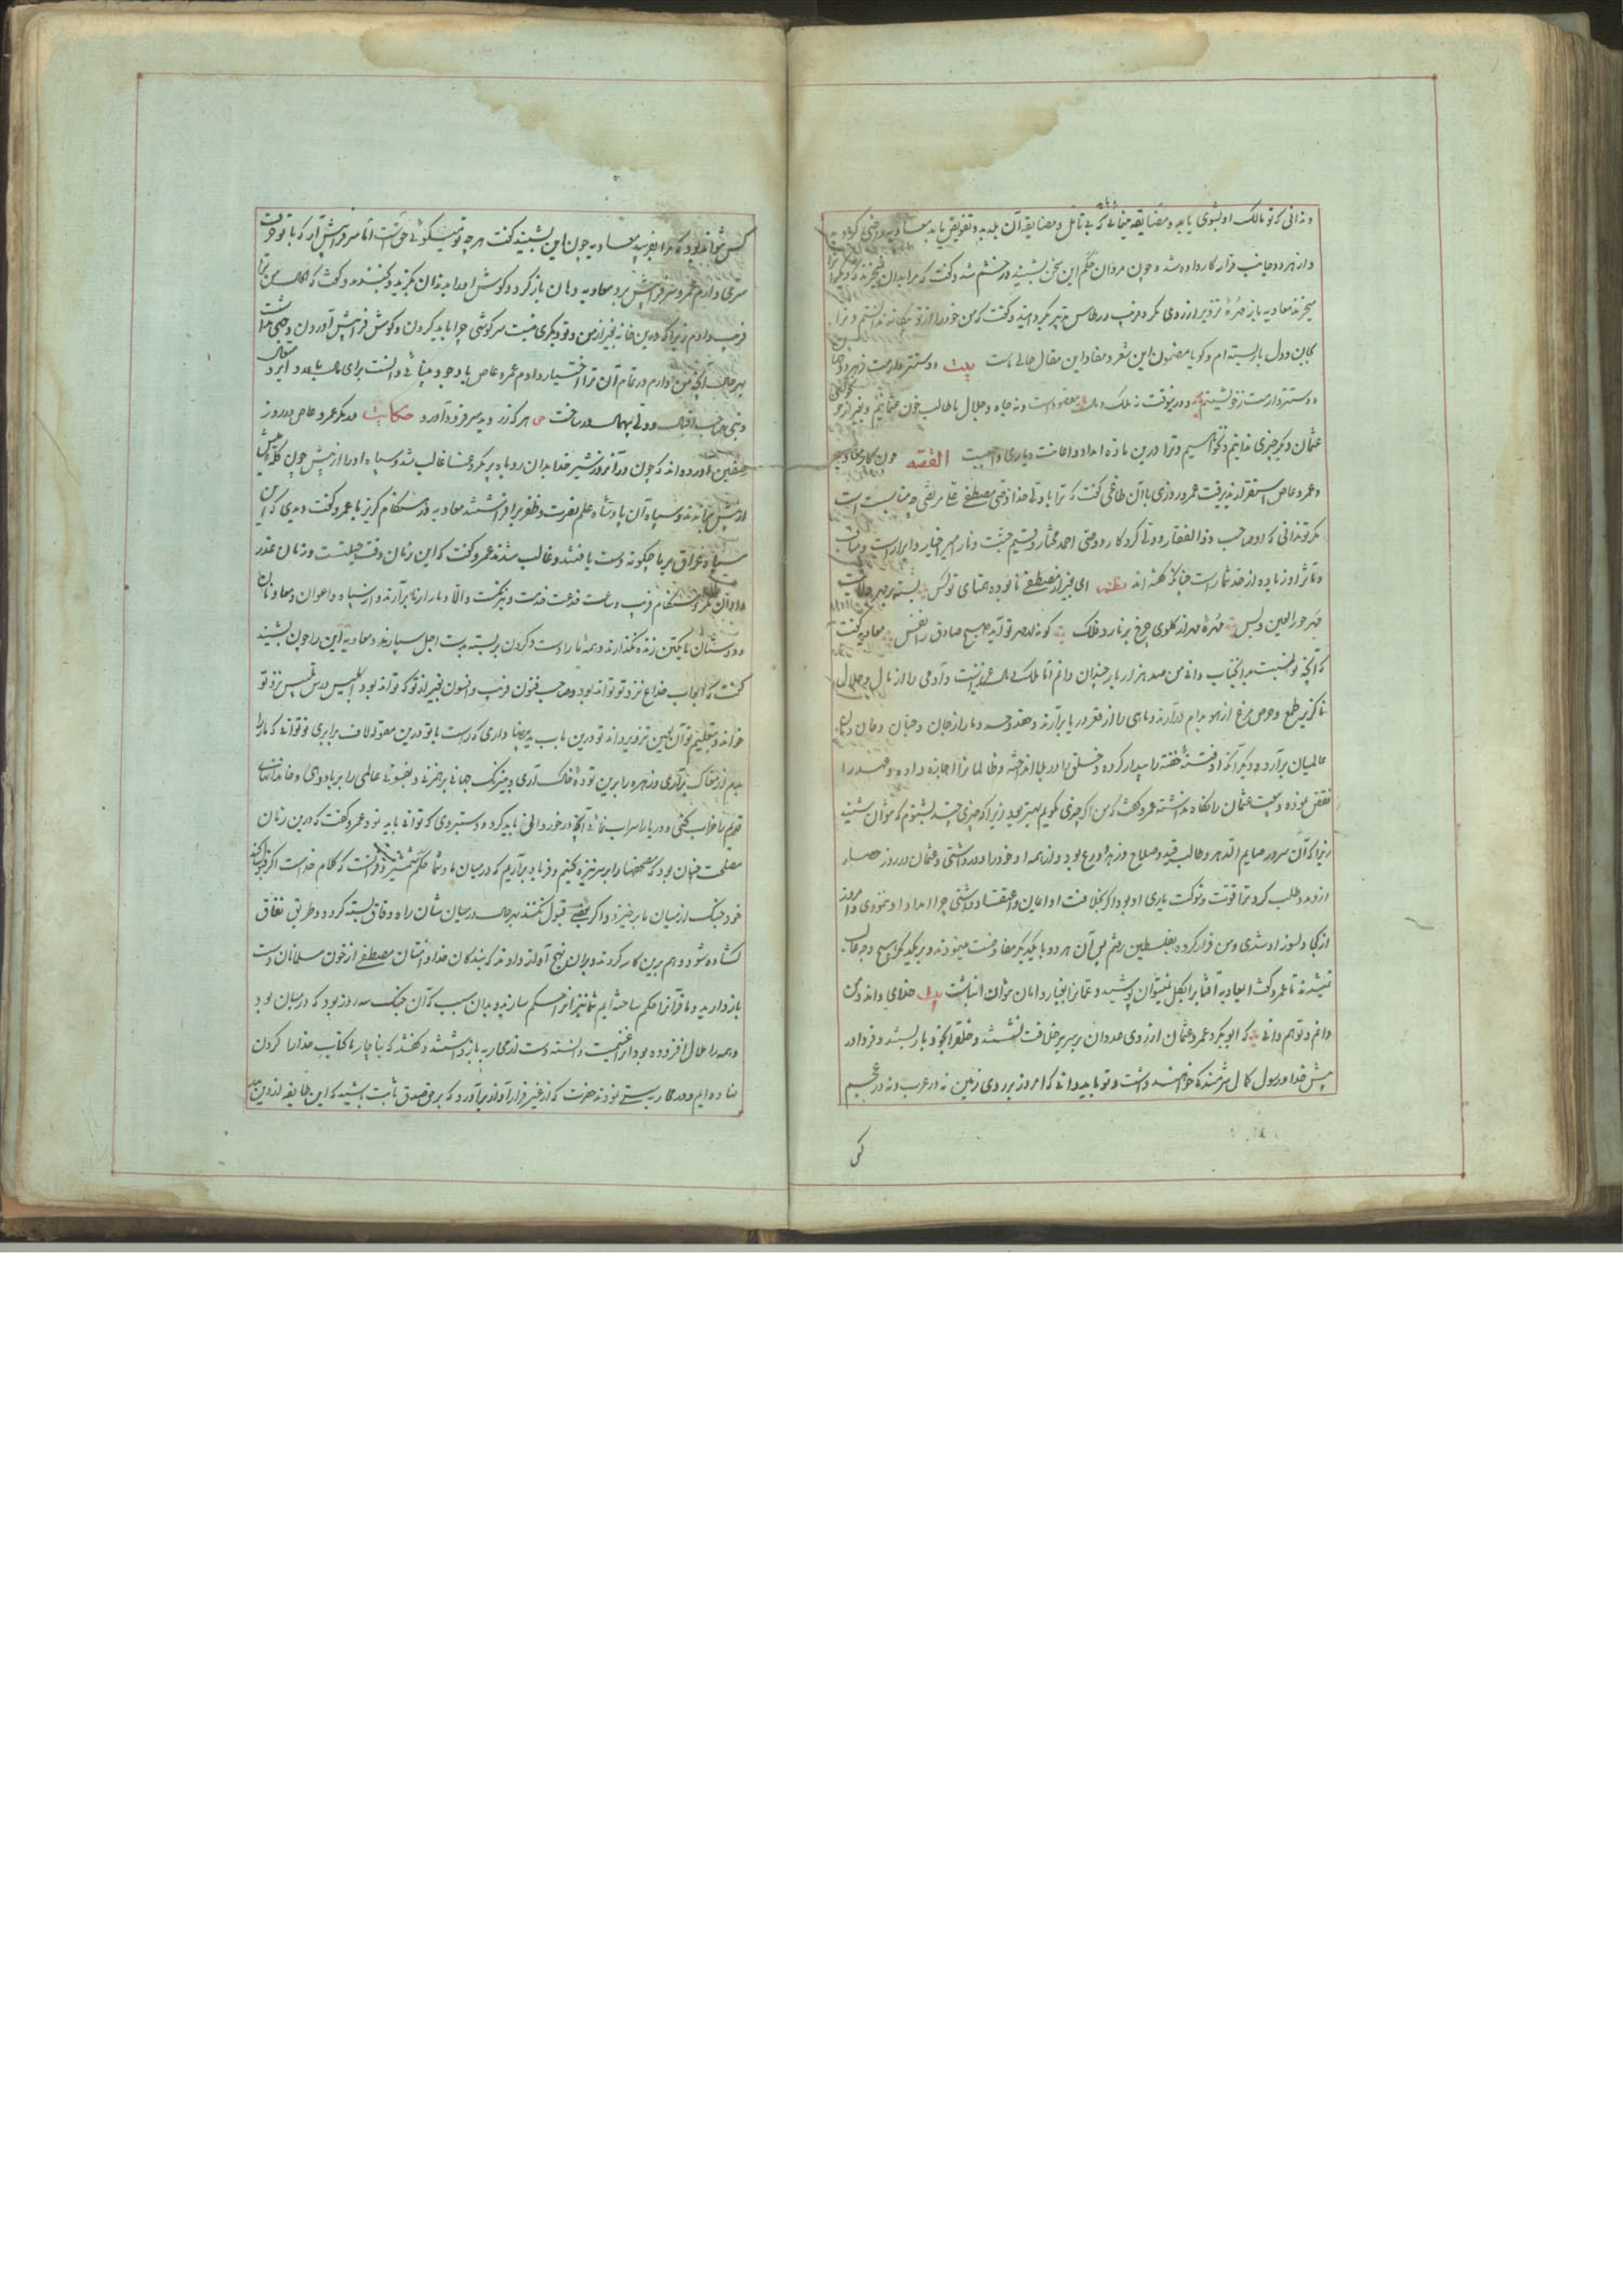 و ندانی که تو مالک او بشوی یا بد و مضایقه مینمائی که بی تأمل و مضایقه آن بلده بدو تفویض باید
و از هر دو جانب قرار کار داده شد و چون مروان حکم این سخن بشنید در خشم شد و گفت که مرا بدان
میخرند معاویه باز مهرهٔ تزویر از روی مکر و فریب در طاس تدبیر گردانید و گفت که من خود را از تو بیگانه ندانستم و ترا
بجان و دل بازبسته ام و گویا مضمون این شعر و مفاد این مقال حالی ماست بیت دوستتر دارمت ز هر دو جهان
دوستتر دارمت ز خویشتنم و درینوقت نه ملک و مال مقصود است و نه جاه و جلال ما طالب خون عثمانیم و بغیر از خون
عثمان دیگر چیزی ندانیم و نخواهیم و ترا درین ماده امداد و اعانت و یاری واجبست القصه چون کار معاویه
و عمرو عاص استقرار پذیرفت عمرو روزی با آن طاغی گفت که ترا با ولی خدا و وصی مصطفی علی مرتضی چه مناسبت است
مگر تو ندانی که او صاحب ذوالفقار و ولی کردگار و وصی احمد مختار و قسیم جنت و نار امیر اخیار و ابرار است و مناقب
و مآثر او زیاده از حد شمار است چنانکه گفته اند نظم ای بغیر از مصطفی نابوده همتای تو کس بسته بر مهر ولایت
مهر حور العین و بس مهرهٔ مهر از گلوی چرخ برنارد فلک گر نه از مهر تو آید صبح صادق را نفس معاویه گفت
که آنچه تو نسبت بآنجناب دانی من صد هزار بار چندان دانم اما ملک و مال عزیز است و آدمی را از مال و جلال
ناگزیر طمع و حرص مرغ از هوا بدام درآرند و ماهی را از قعر دریا برآرند و حقد و حسد دمار از جان و جنان و خان و مان
عالمیان برآرد و دیگر آنکه او فتنهٔ خفته را بیدار کرده و خلق را در بلا انداخته و ظالمان را اجازه داده و عهد را
نقض نموده و بیعت عثمان را نگاه نداشته عمرو گفت که من اگر چیزی نگویم بهتر بود زیرا که چیزی چند بشنوم که نتوان شنید
زیرا که آن سرور صایم الدهر و طالب قید و صلاح و زهد و ورع بود و از همه او خود را دور داشتی و عثمان در روز حصار
از تو مدد طلب کرد ترا قوت و شوکت یاری او بود اگر بخلافت او اعان و اعتقاد داشتی چرا امداد او ننمودی و امروز
از کجا دلسوز او شدی و من فرار کرده بفلسطین رفتم پس آن هر دو با یکدیگر مفاوضت مینمودند و بر یکدیگر بهیچ وجه غالب
نمیشدند تا عمرو گفت ای معاویه آفتاب را بگل نمیتوان پوشید و عمان را بغبار دامان نتوان انباشت بیت خدای داند و من
دانم و تو هم دانی که ابوبکر و عمر و عثمان از روی عدوان بر سریر خلافت نشستند و خلق را بخود باز بستند و فردا در
پیش خدا و رسول کمال شرمندگی خواهند داشت و تو باید دانی که امروز بر روی زمین نه در عرب و نه در عجم
کس
کس نتواند بود که مرا بفریبد معاویه چون این بشنید گفت هر چه تو میگوئی حق است اما سر فراپیش آر که با تو حرف
سری دارم عمرو سر فراپیش برد معاویه دهان باز کرد و گوش او را بدندان بگزید و بخندید و گفت که
فریب دادم زیرا که درین خانه بغیر از من و تو دیگری نیست سرگوشی چرا باید کردن و گوش فراپیش آوردن
بهر حال آنچه من دارم در تمام آن ترا اختیار دادم عمرو عاص با وجود بینائی و دانست برای مال
و بنی صاحب اقبال و دولتی پنهان ساخت هر که زر دید سر فرود آورد حکایت مکر دیگر عمرو عاص در روز
صفین آورده اند که چون در آنروز شیر خدا بدان روباه پر مکر و دغا غالب شد و سپاه او را از پیش چون گلهٔ میش
از پیش براندند و سپاه آن پادشاه علم نصرت و ظفر برافراشتند معاویه در هنگام گریز با عمرو گفت دیدی که این
سپاه عراق بر ما چگونه دست یافتند و غالب شدند عمرو گفت که این زمان وقت حیلتست و زمان غدر
و اوان مکر و هنگام فریب و ساعت خدعت خدیعت و نیرنگست والا دمار از ما برآرند و از سپاه و اعوان و معاونان
و دوستان ما یک تن زنده نگذارند و همه ما را دست و گردن بربسته بدست اجل سپارند معاویه این را چون بشنید
گفت که ابواب خداع نزد تو تواند بود و صاحب فنون فریب و افسون بغیر از تو که تواند بود ابلیس درس تلبیس نزد تو
خواند و بتعلیم تو آن لعین تزویر داند تو درین باب ید بیضا داری که راست با تو درین مقوله لاف برابری تو توانی که ما را
بدم از مغاک برآری و زهره را برین تودهٔ خاک آری و بنیرنگ جهانی برهم زنی و بفسونی عالمی را بر باد دهی و خاندانهای
قدیم را خراب کنی و دریا را سراب نمائی آنچه درخور دانی باید کرد و دستبردی که توانی باید نمود عمرو گفت که درین زمان
مصلحت چنان بود که مصحفها را بر سر نیزه کنیم و فریاد برآریم که در میان ما و شما حکم شمشیر و قرانست که کلام خداست اگر قبول کنند
خود جنگ از میان ما برخیزد و اگر بعضی قبول نکنند بهر حال در میان شان راه وفاق بسته گردد و طریق نفاق
گشاده شود و هم برین کار کردند و بر این نهج آواز دادند که بندگان خدا و امتان مصطفی از خون مسلمانان دست
باز دارید و ما قرآن را حکم ساخته ایم شما نیز آنرا حکم سازید و بدان سبب که آن جنگ سه روز بود که در میان بود
و همه را ملال افزوده بود آنرا غنیمت دانسته دست از محاربه باز داشتند و گفتند که بناچار ما کتاب خدا را گردن
نهاده ایم و در محاربه سستی نمودند حضرت کرار غیر فرار آواز برآورد که بر حق و صدق ثابت باشید که این طایفه از دین